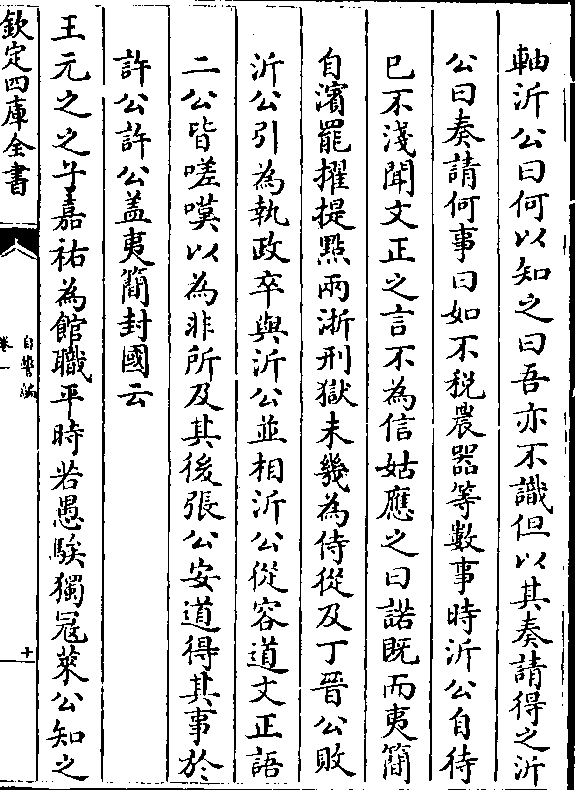 軸沂公曰何以知之曰吾亦不識但以其奏請得之沂
公曰奏請何事曰如不稅農器等數事時沂公自待
已不淺聞文正之言不為信姑應之曰諾既而夷簡
自濱罷擢提點兩浙刑獄未幾為侍從及丁晉公敗
沂公引為執政卒與沂公並相沂公從容道文正語
二公皆嗟嘆以為非所及其後張公安道得其事於
許公許公盖夷簡封國云
王元之之子嘉祐為館職平時若愚騃獨冦萊公知之
欽定四庫全書
自警編
卷一
十